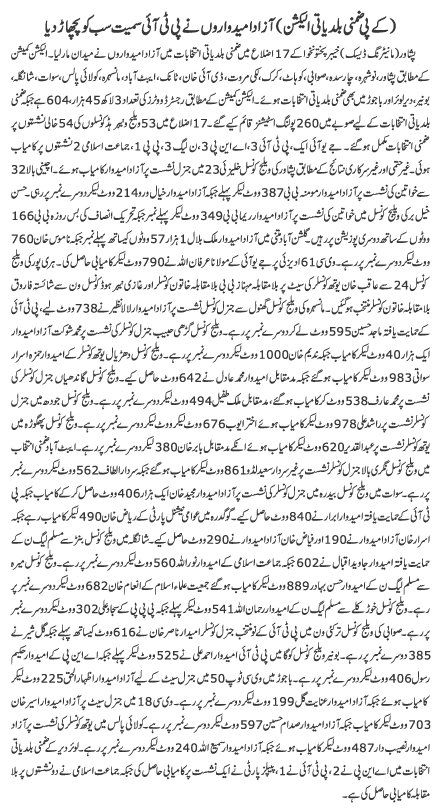 (کے پی ضمنی بلدیاتی الیکشن) آزاد امیدواروں نے پی ٹی آئی سمیت سب کو پچھاڑ دیا
پشاور (مانیٹرنگ ڈیسک) خیبر پختونخوا کے 17 اضلاع میں ضمنی بلدیاتی انتخابات میں آزاد امیدواروں نے میدان مار لیا۔ الیکشن کمیشن
کے مطابق پشاور، نوشہرہ، چارسدہ، صوابی، کوہاٹ، کرک، لکی مروت، ڈی آئی خان، ٹانک، ایبٹ آباد، مانسہرہ، کولائی پالس، سوات، شانگلہ،
بونیر، دیر لوئر اور باجوڑ میں بھی ضمنی بلدیاتی انتخابات ہوئے۔ الیکشن کمیشن کے مطابق رجسٹرڈ ووٹرز کی تعداد 3 لاکھ 45 ہزار 604 ہے جبکہ
بلدیاتی انتخابات کے لیے صوبے میں 260 پولنگ اسٹیشنز قائم کیے گئے۔ 17 اضلاع میں 53 ویلج ونیبر ہڈ کونسلوں کی 54 خالی نشستوں پر
ضمنی انتخابات مکمل ہوگئے۔ جے یو آئی ایک، پی ٹی آئی 3، اے این پی 3، ن لیگ 3، پی پی 1، جماعت اسلامی 2 نشستوں پر کامیاب
ہوئی۔ غیر حتمی اور غیر سرکاری نتائج کے مطابق پشاور کی ویلج کونسل خلیزئی 23 میں جنرل نشست پر آزاد امیدوار کامیاب ہوئے۔ اچینی بالا 32
سے خواتین کی نشست پر آزاد امیدوار مومنہ بی بی 387 ووٹ لیکر پہلے جبکہ آزاد امیدوار خیال ورو 214 ووٹ لیکر دوسرے نمبر پر رہی۔ حسن
خیل بری ویلج کونسل میں خواتین کی نشست پر آزاد امیدوار ریما بی بی 349 ووٹ لیکر پہلے نمبر جبکہ تحریک انصاف کی بس روزہ بی بی 166
ووٹوں کے ساتھ دوسری پوزیشن پر رہیں۔ گلشن آباد متنی میں آزاد امیدوار ملک بلال 1 ہزار 57 ووٹوں کیساتھ پہلے نمبر جبکہ ناموس خان 760
ووٹ لیکر دوسرے نمبر پر رہے۔ وی سی 61 ادیزئی پر جے یو آئی کے مولانا عرفان اللہ نے 790 ووٹ لیکر کامیابی حاصل کی۔ ہری پور کی ویلج
کونسل 24 سے عاقب خان یوتھ کونسلر کی سیٹ پر بلا مقابلہ مہناز بی بی بلا مقابلہ خاتون کونسلر اور غازی نیبر ہوڈ کونسل ون سے شائستہ فاروق
بلا مقابلہ خاتون کونسلر منتخب ہوگئیں۔ مانسہرہ کی ویلج کونسل گھنول سے جنرل کونسلر نشست پر آزاد امیدوار لالا نظیر نے 738 ووٹ لیے، پی ٹی آئی
کے حمایت یافتہ ماجد حسین 595 ووٹ لے کر دوسرے نمبر پر رہے۔ ویلج کونسل گڑھی حبیب جنرل کونسلر کی نشست پر محمد شوکت آزاد امیدوار
ایک ہزار 40 ووٹ لیکر کامیاب ہوگئے جبکہ ندیم خان 1000 ووٹ لیکر دوسرے نمبر پر رہے۔ ویلج کونسل دھڑیال یوتھ کونسلر کے امیدوار حمزہ اسرار
سواتی 983 ووٹ لیکر کامیاب ہوگئے جبکہ مدمقابل امیدوار محمد عادل نے 642 ووٹ حاصل کیے۔ ویلج کونسل گاندھیاں جنرل کونسلر کی
نشست پر محمد عارف 538 ووٹ لیکر کامیاب ہوئے، مدمقابل ملک طفیل 494 ووٹ لیکر دوسرے نمبر پر رہے۔ ویلج کونسل جبوڑ میں جنرل
کونسلر نشست پر راشد علی 978 ووٹ لیکر کامیاب ہوئے اختر ایوب 676 ووٹ لیکر دوسرے نمبر پر رہے۔ ویلج کونسل پھگوڑہ میں
یوتھ کونسلر نشست پر عبدالقدیر 620 ووٹ لیکر کامیاب ہوئے انکے مدمقابل بابر خان 380 لیکر دوسرے نمبر پر رہے۔ ایبٹ آباد ضمنی انتخابات
میں ویلج کونسل نگری بالا جنرل کونسلر نشست پر غیر سردار سعید لاڈو 861 ووٹ لیکر کامیاب ہوگئے جبکہ سردار الطاف 562 ووٹ لیکر دوسرے
نمبر پر رہے۔ سوات میں ویلج کونسل بیدرہ میں جنرل کونسلر کی نشست پر آزاد امیدوار مجید خان ایک ہزار 406 ووٹ حاصل کرکے کامیاب جبکہ پی
ٹی آئی کے حمایت یافتہ امیدوار ابرار نے 840 ووٹ حاصل کیے۔ گوگدرہ میں عوامی نیشنل پارٹی کے ریاض خان 490 لیکر کامیاب رہے جبکہ
اسرار خان آزاد امیدوار نے 190 اور فیاض خان آزاد امیدوار نے 290 ووٹ حاصل کیے۔ شانگلہ میں ویلج کونسل بنڑ سے مسلم لیگ ن کے
حمایت یافتہ امیدوار جاوید اقبال نے 602 جبکہ جماعت اسلامی کے امیدوار نور اللہ 560 ووٹ لیکر دوسرے نمبر پر رہے۔ ویلج کونسل میرہ
سے مسلم لیگ ن کے امیدوار حسن بہادر 889 ووٹ لیکر کامیاب ہوئے جمعیت علماء اسلام کے انعام خان 682 ووٹ لیکر دوسرے نمبر پر
رہے۔ ویلج کونسل خوڑ کلے سے مسلم لیگ ن کے امیدوار رحمان اللہ 541 ووٹ لیکر پہلے جبکہ پی پی پی کے سجاد علی 302 ووٹ لیکر دوسرے نمبر پر
رہے۔ صوابی کی ویلج کونسل ترکئی ون میں پی ٹی آئی کے نو منتخب جنرل کونسلر امیدوار ناصر خان نے 616 ووٹ کیساتھ پہلے جبکہ گل شیر نے
385 دوسرے نمبر پر رہے۔ بونیر ویلج کونسل کوگا میں پی ٹی آئی امیدوار احمد علی نے 525 ووٹ لیکر پہلے جبکہ اے این پی کے امیدوار حکیم
رسول 406 ووٹ لیکر دوسرے نمبر پر رہے۔ باجوڑ میں وی سی ٹوپ 50 میں جنرل سیٹ کے لیے آزاد امیدوار اظہار الحق 225 ووٹ لیکر
کامیاب ہوئے جبکہ آزاد امیدوار عنایت گل 199 ووٹ لیکر دوسرے نمبر پر رہے۔ وی سی 18 میں جنرل سیٹ پر آزاد امیدوار اسیر خان
703 ووٹ لیکر کامیاب ہوئے جبکہ آزاد امیدوار صدام حسین 597 ووٹ لیکر دوسرے نمبر پر رہے۔ کولائی پالس میں یوتھ کونسلر کی نشست پر آزاد
امیدوار نصیب دار 487 ووٹ لیکر کامیاب ہوئے جبکہ دوسرے نمبر پر آزاد امیدوار سمیع اللہ 240 ووٹ لیکر دوسرے نمبر پر رہے۔ لوئر دیر کے ضمنی بلدیاتی
انتخابات میں اے این پی نے 2، پی ٹی آئی نے 1، پیپلز پارٹی نے ایک نشست پر کامیابی حاصل کی جبکہ جماعت اسلامی نے دو نشستوں پر بلا
مقابلہ کامیابی حاصل کی ہے۔